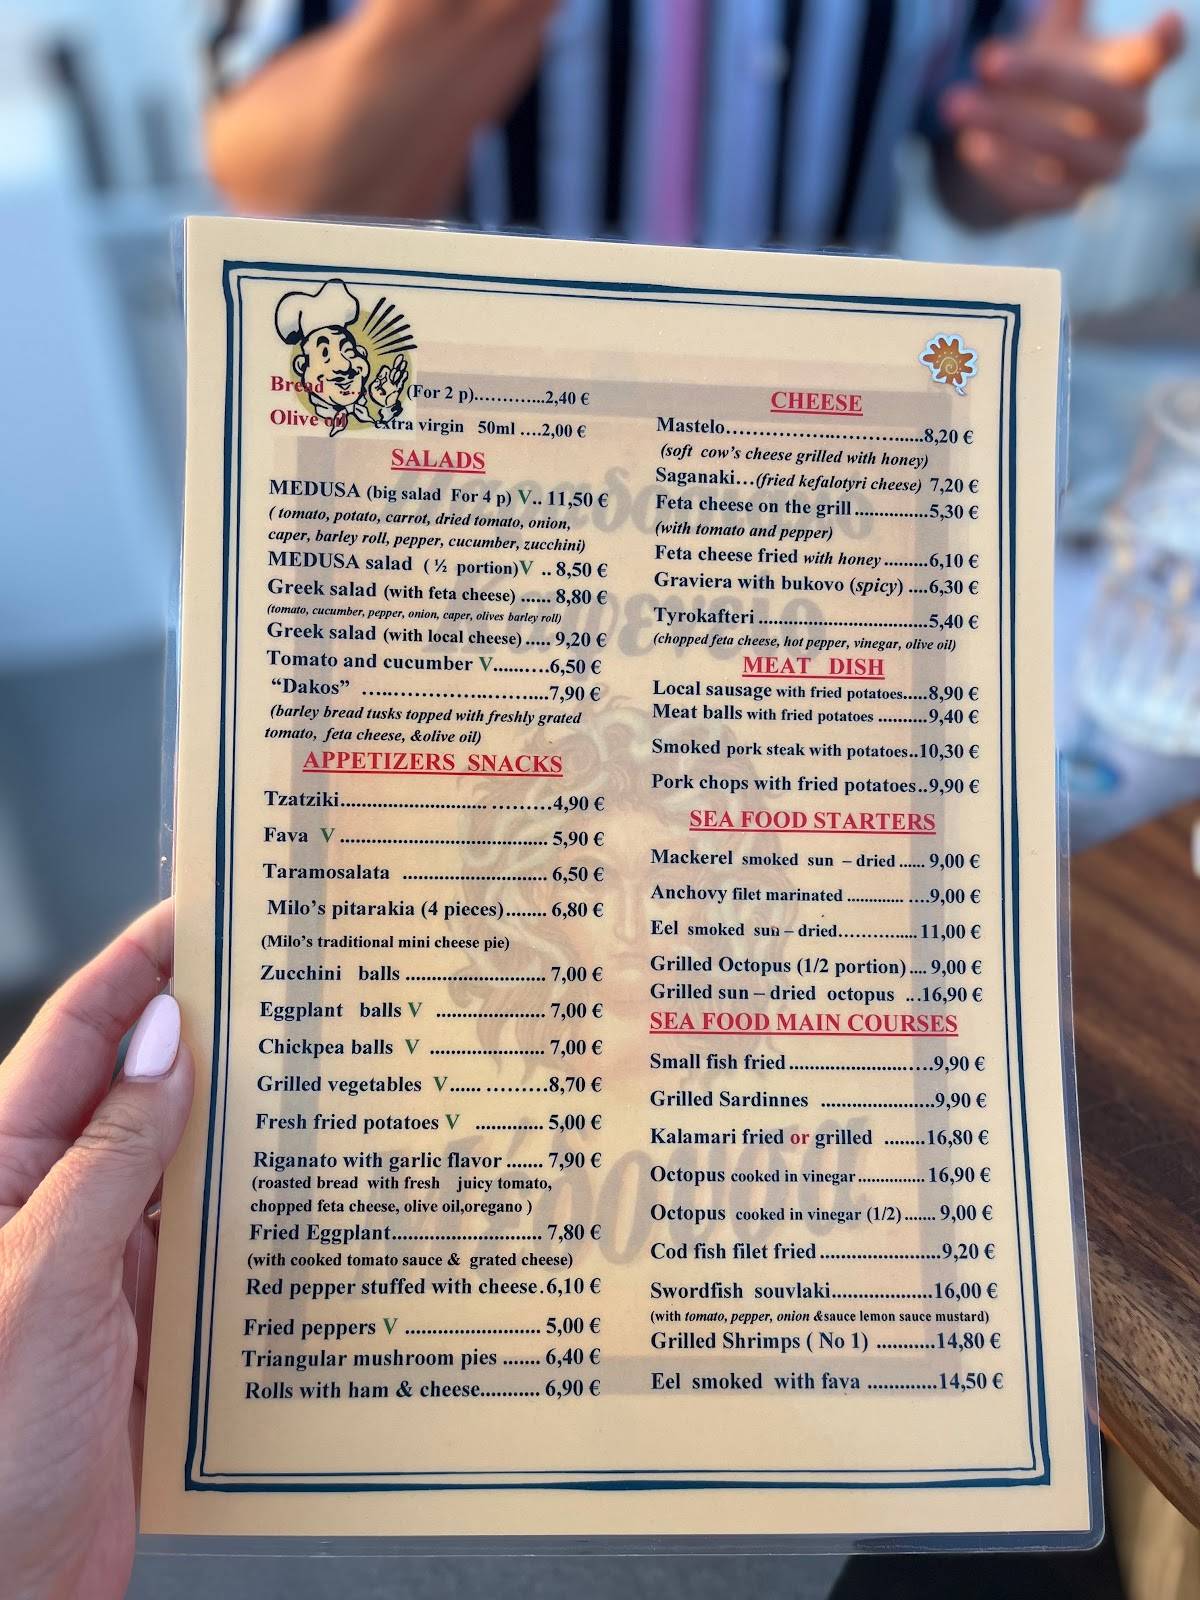 Bread ..... (For 2 p)…………...2,40 €
Olive oil extra virgin 50ml ….2,00 €
SALADS
MEDUSA (big salad For 4 p) V.. 11,50 €
( tomato, potato, carrot, dried tomato, onion,
caper, barley roll, pepper, cucumber, zucchini)
MEDUSA salad ( ½ portion)V .. 8,50 €
Greek salad (with feta cheese) ...... 8,80 €
(tomato, cucumber, pepper, onion, caper, olives barley roll)
Greek salad (with local cheese) ..... 9,20 €
Tomato and cucumber V......….6,50 €
“Dakos” …..……………..………...7,90 €
(barley bread tusks topped with freshly grated
tomato, feta cheese, &olive oil)
APPETIZERS SNACKS
Tzatziki............................ ………4,90 €
Fava V ........................................ 5,90 €
Taramosalata ............................ 6,50 €
Milo’s pitarakia (4 pieces)........ 6,80 €
(Milo’s traditional mini cheese pie)
Zucchini balls ........................... 7,00 €
Eggplant balls V ..................... 7,00 €
Chickpea balls V ...................... 7,00 €
Grilled vegetables V...... ………8,70 €
Fresh fried potatoes V ............. 5,00 €
Riganato with garlic flavor ....... 7,90 €
(roasted bread with fresh juicy tomato,
chopped feta cheese, olive oil,oregano )
Fried Eggplant............................. 7,80 €
(with cooked tomato sauce & grated cheese)
Red pepper stuffed with cheese.6,10 €
Fried peppers V .......................... 5,00 €
Triangular mushroom pies ....... 6,40 €
Rolls with ham & cheese........... 6,90 €
CHEESE
Mastelo……………..………......8,20 €
(soft cow’s cheese grilled with honey)
Saganaki…(fried kefalotyri cheese) 7,20 €
Feta cheese on the grill ..............5,30 €
(with tomato and pepper)
Feta cheese fried with honey .........6,10 €
Graviera with bukovo (spicy) ....6,30 €
Tyrokafteri ................................5,40 €
(chopped feta cheese, hot pepper, vinegar, olive oil)
MEAT DISH
Local sausage with fried potatoes.....8,90 €
Meat balls with fried potatoes ..........9,40 €
Smoked pork steak with potatoes..10,30 €
Pork chops with fried potatoes..9,90 €
SEA FOOD STARTERS
Mackerel smoked sun – dried ...... 9,00 €
Anchovy filet marinated ............. ….9,00 €
Eel smoked sun – dried………..... 11,00 €
Grilled Octopus (1/2 portion) .... 9,00 €
Grilled sun – dried octopus ...16,90 €
SEA FOOD MAIN COURSES
Small fish fried .......................….9,90 €
Grilled Sardinnes ......................9,90 €
Kalamari fried or grilled ........16,80 €
Octopus cooked in vinegar................ 16,90 €
Octopus cooked in vinegar (1/2) ....... 9,00 €
Cod fish filet fried .......................9,20 €
Swordfish souvlaki....................16,00 €
(with tomato, pepper, onion &sauce lemon sauce mustard)
Grilled Shrimps ( No 1) ............14,80 €
Eel smoked with fava .............14,50 €